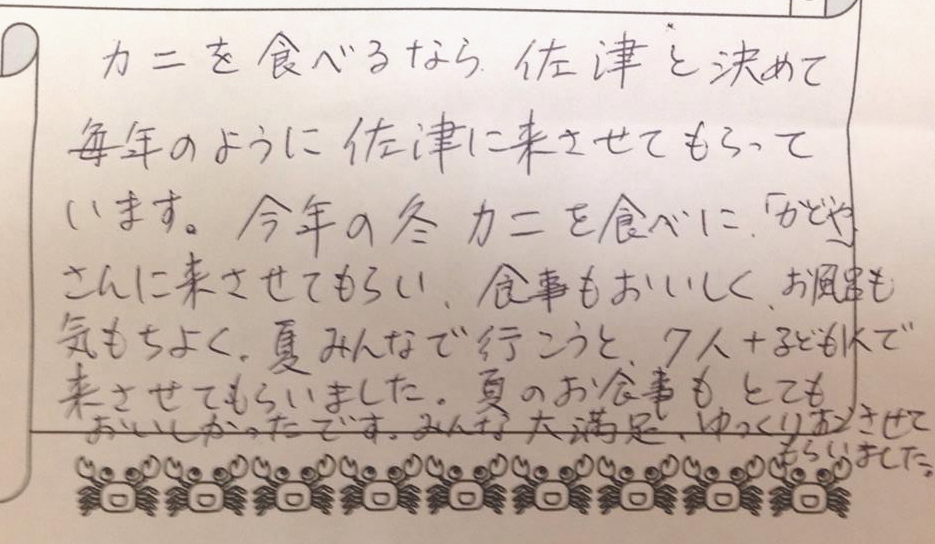 カニを食べるなら 佐津と決めて
毎年のように佐津に来させてもらって
います。今年の冬カニを食べに、「かどや」
さんに来させてもらい、食事もおいしく、お風呂も
気もちよく、夏みんなで行こうと、7人+子ども1人で
来させてもらいました。夏のお食事も とても
おいしかったです。みんな大満足、ゆっくりさせて
もらいました。